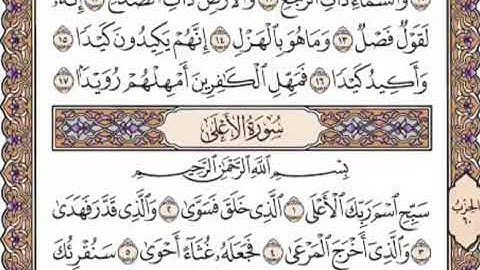 وَٱلسَّمَآءِ ذَاتِ ٱلرَّجْعِ ۝١١ وَٱلْأَرْضِ ذَاتِ ٱلصَّدْعِ ۝١٢ إِنَّهُۥ
لَقَوْلٌ فَصْلٌ ۝١٣ وَمَا هُوَ بِٱلْهَزْلِ ۝١٤ إِنَّهُمْ يَكِيدُونَ كَيْدًا ۝١٥
وَأَكِيدُ كَيْدًا ۝١٦ فَمَهِّلِ ٱلْكَٰفِرِينَ أَمْهِلْهُمْ رُوَيْدًۢا ۝١٧
سُورَةُ الْأَعْلَىٰ
بِسْمِ ٱللَّهِ ٱلرَّحْمَٰنِ ٱلرَّحِيمِ
سَبِّحِ ٱسْمَ رَبِّكَ ٱلْأَعْلَى ۝١ ٱلَّذِى خَلَقَ فَسَوَّىٰ ۝٢ وَٱلَّذِى قَدَّرَ فَهَدَىٰ
۝٣ وَٱلَّذِىٓ أَخْرَجَ ٱلْمَرْعَىٰ ۝٤ فَجَعَلَهُۥ غُثَآءً أَحْوَىٰ ۝٥ سَنُقْرِئُكَ
الحزب
٦٠